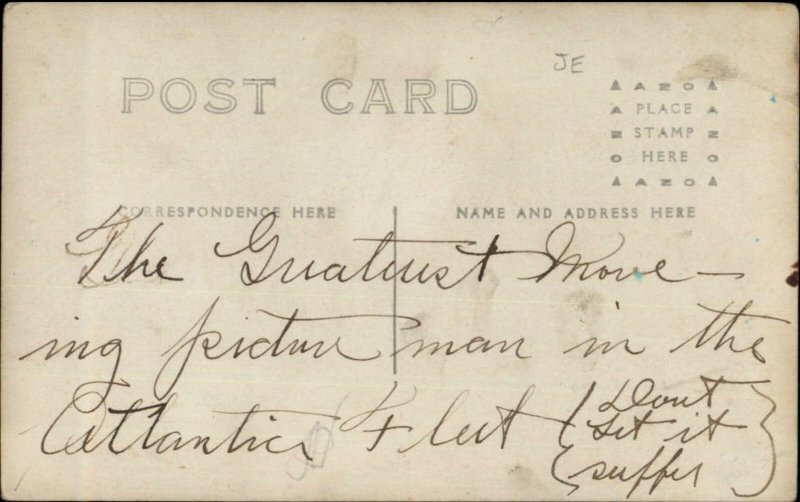 JE
POST CARD
▲ AZO ▲
▲ PLACE ▲
Z STAMP Z
O HERE O
▲ AZO ▲
CORRESPONDENCE HERE
NAME AND ADDRESS HERE
The Greateust Move-
ing picture man in the
Atlantic Fleet (Dont
let it
suffer)